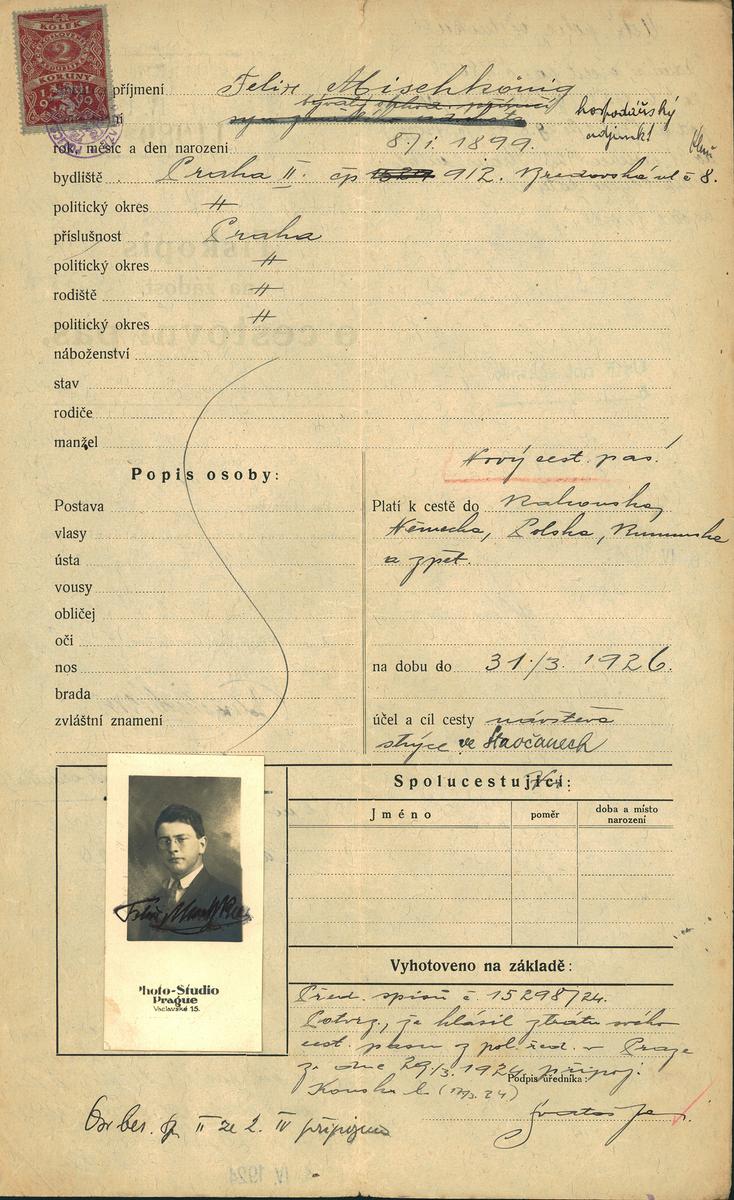 KOLEK
2
KORUNY
1919
příjmení Felix Mischkönig
hospodářský
adjunkt
rok, měsíc a den narození 8/i. 1899.
bydliště Praha II. čp 912. Bredovská ul č 8.
politický okres "
příslušnost Praha
politický okres "
rodiště "
politický okres "
náboženství
stav
rodiče
manžel
Nový cest. pas!
Popis osoby:
Postava
vlasy
ústa
vousy
obličej
oči
nos
brada
zvláštní znamení
Platí k cestě do Rakouska,
Německa, Polska, Rumunska
a zpět.
na dobu do 31./3. 1926.
účel a cíl cesty návštěva
strýce ve
Spolucestující:
Jméno
poměr
doba a místo
narození
Photo-Studio
Prague
Václavské 15.
Vyhotoveno na základě:
Před. spisů č. 15298/24.
Potvrz, že hlásil ztrátu svého
cest. pasu z pol. řed. v Praze
ze dne 29/3. 1924 připoj.
Podpis úředníka:
II ze 2. IV připojeno
IV. 1924